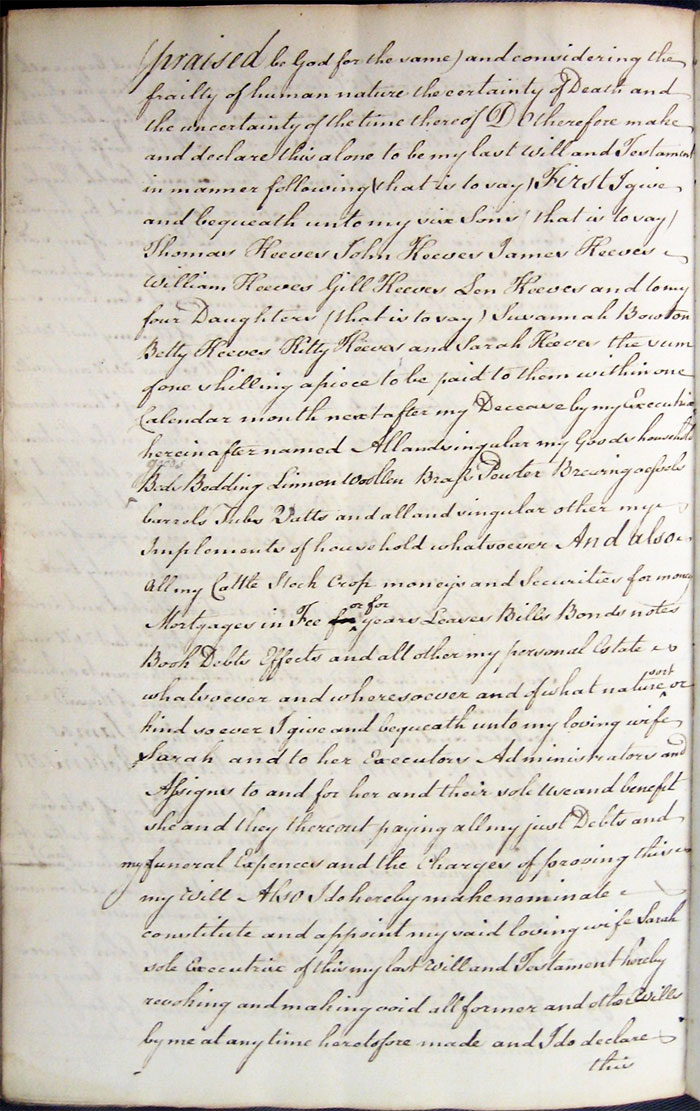 (praised be God for the same) and considering the
frailty of human nature the certainty of Death and
the uncertainty of the time thereof Do therefore make
and declare this alone to be my last Will and Testament
in manner following (that is to say) First I give
and bequeath unto my six Sons (that is to say)
Thomas Reeves John Reeves James Reeves
William Reeves Gill Reeves Len Reeves and to my
four Daughters (that is to say) Susannah Bowton
Betty Reeves Kitty Reeves and Sarah Reeves the sum
of one shilling apiece to be paid to them within one
Calendar month next after my Decease by my Executrix
hereinafter named All and singular my Goods household
Beds Bedding Linnen Woollen Brass Pewter Brewing vessels
barrels Tubs Vatts and all and singular other my
Implements of household whatsoever And also
all my Cattle Stock Crop moneys and Securities for money
Mortgages in Fee for or for years Leases Bills Bonds notes
Book Debts Effects and all other my personal Estate
whatsoever and wheresoever and of what nature sort or
kind soever I give and bequeath unto my loving wife
Sarah and to her Executors Administrators and
Assigns to and for her and their sole use and benefit
she and they thereout paying all my just Debts and
my funeral Expences and the Charges of proving this
my Will Also I do hereby make nominate
constitute and appoint my said loving wife Sarah
sole Executrix of this my last Will and Testament hereby
revoking and making void all former and other Wills
by me at any time heretofore made and I do declare
this